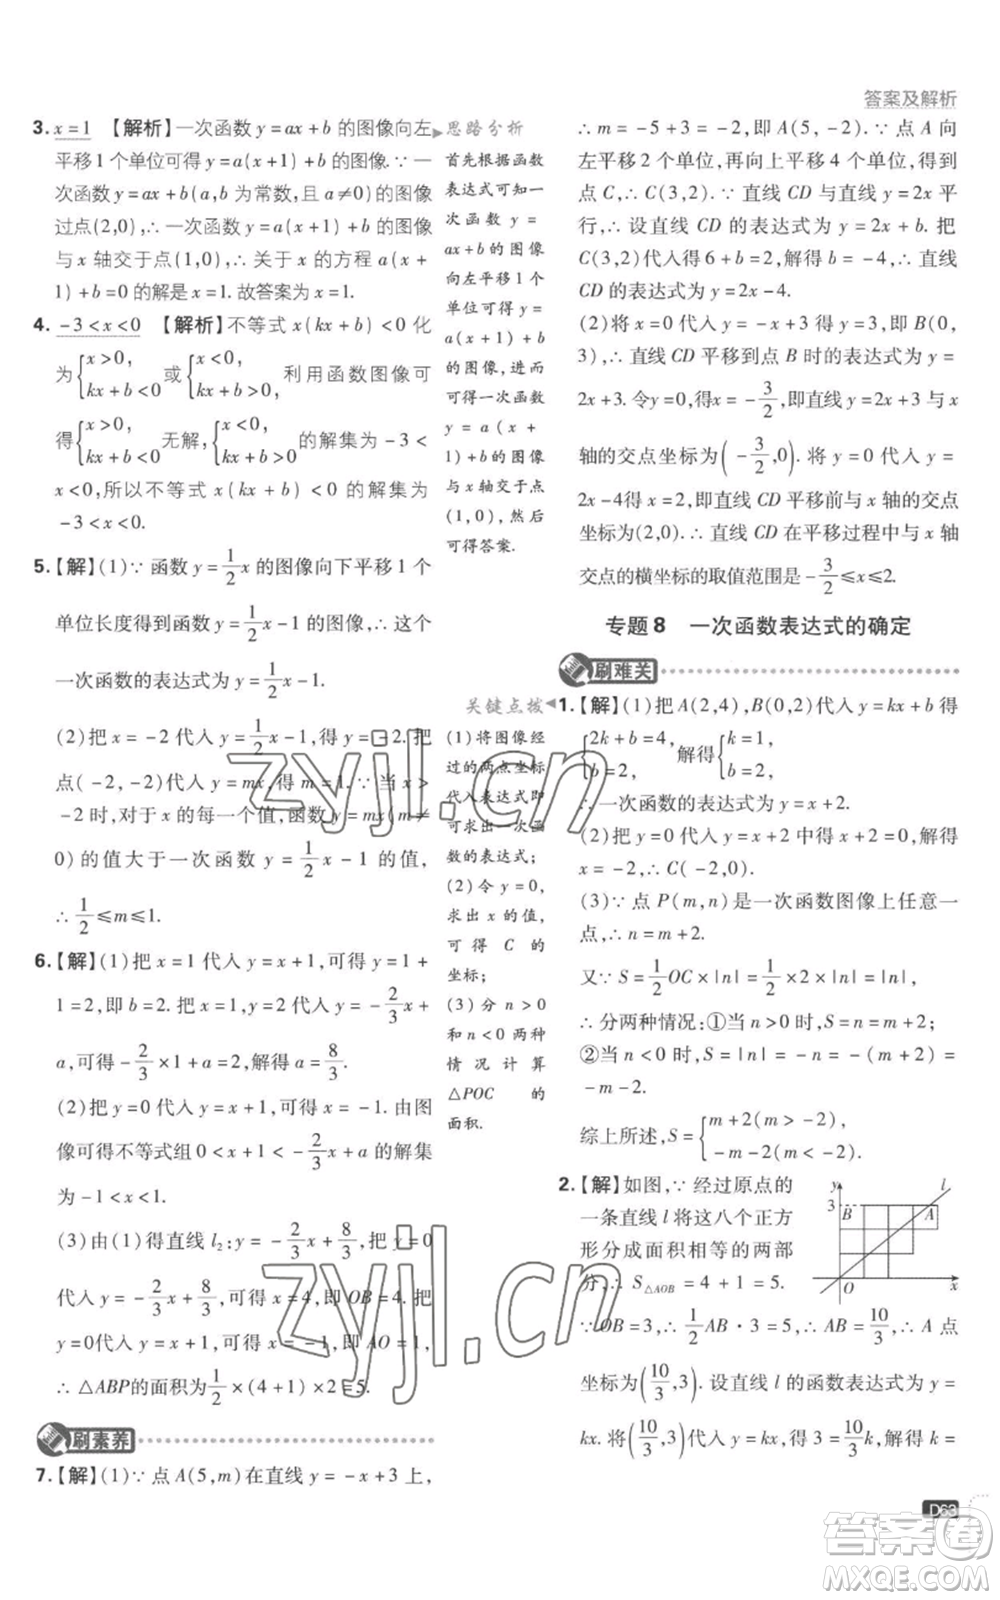 答案及解析
3. x=1 【解析】一次函数 y=ax+b 的图像向左
平移 1 个单位可得 y=a(x+1)+b 的图像.∵一
次函数 y=ax+b(a,b 为常数,且 a≠0)的图像
过点(2,0),∴一次函数 y=a(x+1)+b 的图像
与 x 轴交于点(1,0),∴关于 x 的方程 a(x+
1)+b=0 的解是 x=1.故答案为 x=1.
4. -3<x<0 【解析】不等式 x(kx+b)<0 化
为{x>0, kx+b<0 或{x<0, kx+b>0, 利用函数图像可
得{x>0, kx+b<0 无解,{x<0, kx+b>0 的解集为 -3<
x<0,所以不等式 x(kx+b)<0 的解集为
-3<x<0.
5.【解】(1)∵函数 y=1/2 x 的图像向下平移 1 个
单位长度得到函数 y=1/2 x-1 的图像,∴这个
一次函数的表达式为 y=1/2 x-1.
(2)把 x=-2 代入 y=1/2 x-1,得 y=-2.把
点(-2,-2)代入 y=mx,得 m=1.∵当 x>
-2 时,对于 x 的每一个值,函数 y=mx(m≠
0)的值大于一次函数 y=1/2 x-1 的值,
∴1/2≤m≤1.
6.【解】(1)把 x=1 代入 y=x+1,可得 y=1+
1=2,即 b=2.把 x=1,y=2 代入 y=-2/3 x+
a,可得 -2/3×1+a=2,解得 a=8/3.
(2)把 y=0 代入 y=x+1,可得 x=-1.由图
像可得不等式组 0<x+1<-2/3 x+a 的解集
为 -1<x<1.
(3)由(1)得直线 l₂:y=-2/3 x+8/3,把 y=0
代入 y=-2/3 x+8/3,可得 x=4,即 OB=4.把
y=0代入 y=x+1,可得 x=-1,即 AO=1,
∴△ABP的面积为1/2×(4+1)×2=5.
刷素养
7.【解】(1)∵点 A(5,m)在直线 y=-x+3 上,
思路分析
首先根据函数
表达式可知一
次函数 y=
ax+b的图像
向左平移1个
单位可得y=
a(x+1)+b
的图像,进而
可得一次函数
y=a(x+
1)+b的图像
与x轴交于点
(1,0),然后
可得答案.
关键点拨
(1)将图像经
过的两点坐标
代入表达式即
可求出一次函
数的表达式;
(2)令 y=0,
求出 x 的值,
可得 C 的
坐标;
(3)分 n>0
和 n<0 两种
情况计算
△POC 的
面积.
∴m=-5+3=-2,即 A(5,-2).∵点 A 向
左平移 2 个单位,再向上平移 4 个单位,得到
点 C,∴C(3,2).∵直线 CD 与直线 y=2x 平
行,∴设直线 CD 的表达式为 y=2x+b.把
C(3,2)代入得 6+b=2,解得 b=-4,∴直线
CD 的表达式为 y=2x-4.
(2)将 x=0 代入 y=-x+3 得 y=3,即 B(0,
3),∴直线 CD 平移到点 B 时的表达式为 y=
2x+3.令y=0,得x=-3/2,即直线 y=2x+3 与 x
轴的交点坐标为(-3/2,0).将 y=0 代入 y=
2x-4得 x=2,即直线 CD 平移前与 x 轴的交点
坐标为(2,0).∴直线 CD 在平移过程中与 x 轴
交点的横坐标的取值范围是-3/2≤x≤2.
专题 8 一次函数表达式的确定
刷难关
1.【解】(1)把 A(2,4),B(0,2)代入 y=kx+b 得
{2k+b=4, b=2, 解得{k=1, b=2,
∴一次函数的表达式为 y=x+2.
(2)把 y=0 代入 y=x+2 中得 x+2=0,解得
x=-2,∴C(-2,0).
(3)∵点 P(m,n)是一次函数图像上任意一
点,∴n=m+2.
又∵S=1/2 OC×|n|=1/2×2×|n|=|n|,
∴分两种情况:①当 n>0 时,S=m+2;
②当 n<0 时,S=|n|=-n=-(m+2)=
-m-2.
综上所述,S={m+2(m>-2), -m-2(m<-2).
2.【解】如图,∵经过原点的
一条直线 l 将这八个正方
形分成面积相等的两部
分,∴S△AOB=4+1=5.
y
l
3
B
A
O
x
∵OB=3,∴1/2 AB·3=5,∴AB=10/3,∴A 点
坐标为(10/3,3).设直线 l 的函数表达式为 y=
kx.将(10/3,3)代入 y=kx,得 3=10/3 k,解得 k=
D63
zyjl.cn
zyjl.cn
答案圈
MXQE.COM